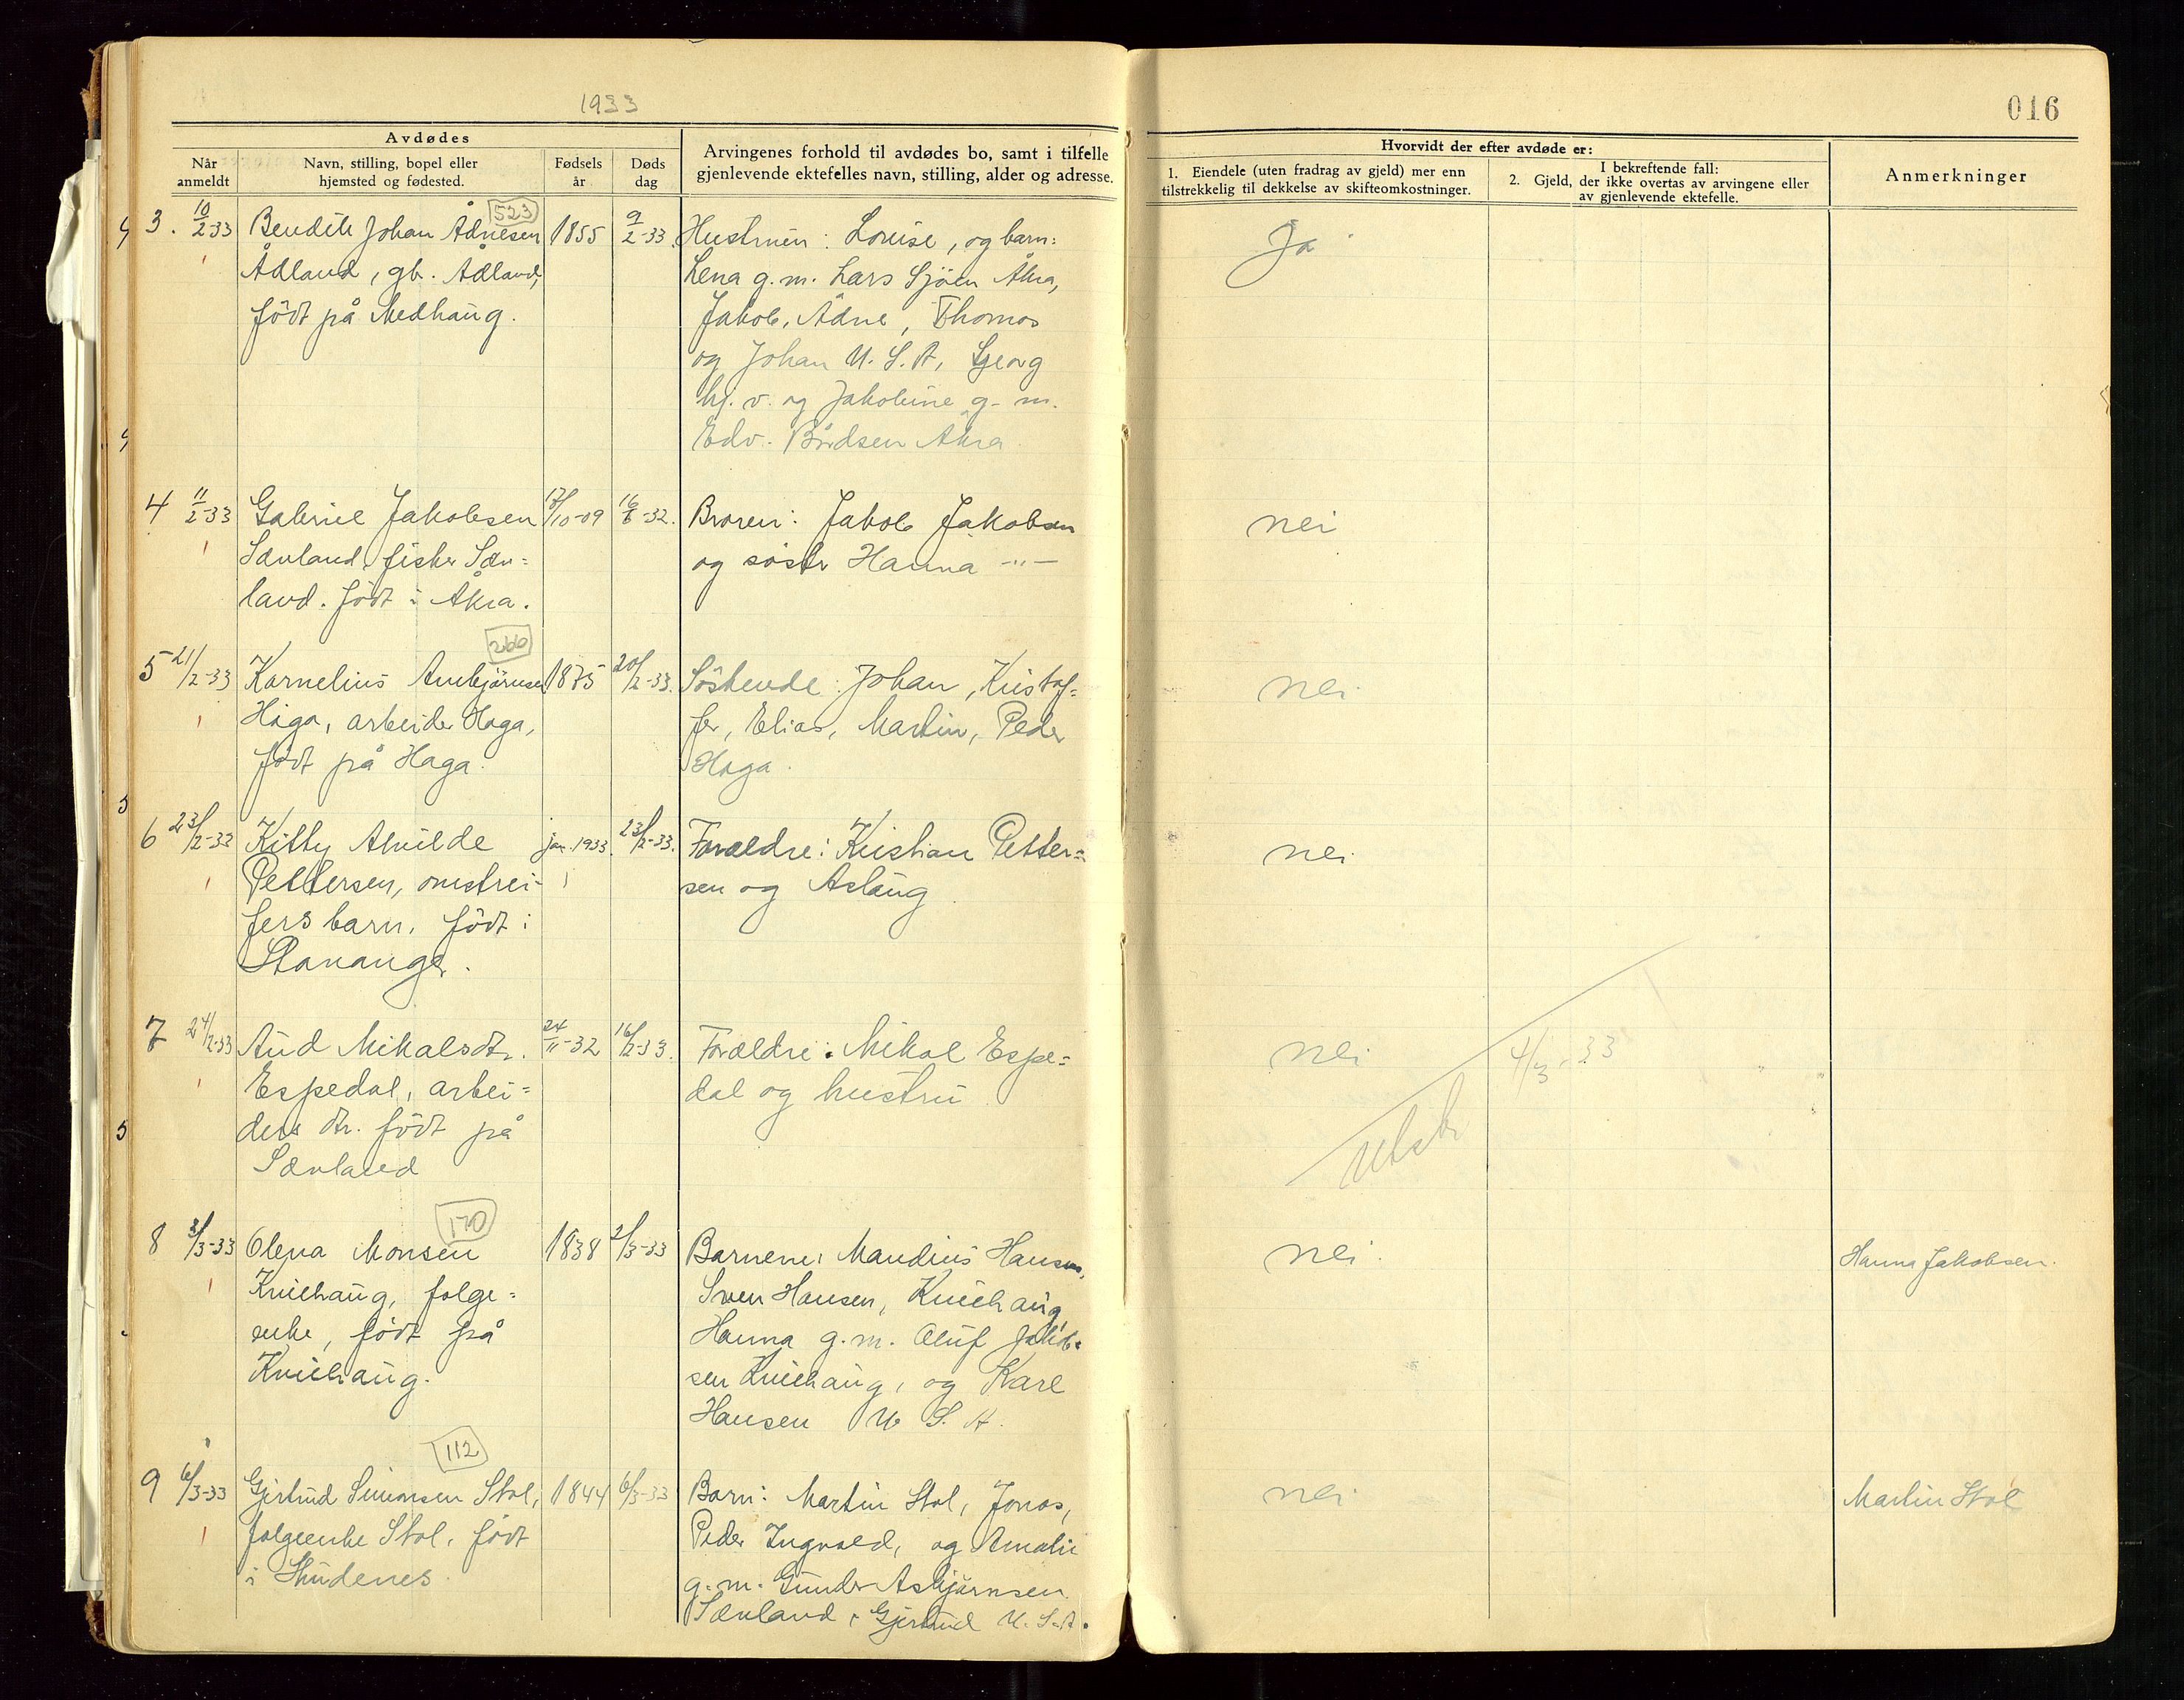 1933
016
Avdødes
Når
anmeldt
Navn, stilling, bopel eller
hjemsted og fødested.
Fødsels
år
Døds
dag
Arvingenes forhold til avdødes bo, samt i tilfelle
gjenlevende ektefelles navn, stilling, alder og adresse.
Hvorvidt der efter avdøde er:
1. Eiendele (uten fradrag av gjeld) mer enn
tilstrekkelig til dekkelse av skifteomkostninger.
I bekreftende fall:
2. Gjeld, der ikke overtas av arvingene eller
av gjenlevende ektefelle.
Anmerkninger
523
3. 10/2-33 Bendik Johan Ådnesen 1855 9/2-33. Hustruen: Lovise, og barn: Ja
Ådland, gb. Ådland, Lena g.m. Lars Sjöen Åkra,
født på Medhaug. Jakob, Ådne, Thomas
og Johan U.S.A, Georg
hj. v. og Jakobine g. m.
Edv. Bårdsen Åkra.
4 11/2-33 Gabriel Jakobsen 17/10-09 16/8-32. Broren: Jakob Jakobsen nei
Sævland, fisker Sæv=
land. født i Åkra. og søster Hanna -"-
266
5 21/2-33 Kornelius Ambjörnsen 1875 20/2-33. Söskende: Johan, Kristof= nei
Haga, arbeider Haga, fer, Elias, Martin, Peder
født på Haga. Haga.
6 23/2-33 Kitty Alvilde jan. 1933. 23/2-33. Forældre: Kristian Petter= nei
Pettersen, omstrei- sen og Aslaug.
fers barn. født i
Stavanger.
7 24/2-33 Aud Mikalsdtr. 24/11-32 16/2-33. Forældre: Mikal Espe= nei 4/3-33
Espedal, arbei= dal og hustru.
ders dtr. født på utskr
Sævland
170
8 3/3-33 Olena Monsen 1838 2/3-33 Barnene: Mandius Hansen, nei. Hanna Jakobsen.
Kvilhaug, folge= Sven Hansen, Kvilhaug,
enke, født på Hanna g.m. Oluf Jakob=
Kvilhaug. sen Kvilhaug, og Karl
Hansen U.S.A.
112
9 6/3-33 Gjertrud Simonsen Stol, 1844 6/3-33 Barn: Martin Stol, Jonas, nei Martin Stol
folgeenke Stol. født Peder Ingvald, og Amalie
i Skudenes. g.m. Gunder Asbjörnsen
Sævland, Gjertrud U.S.A.